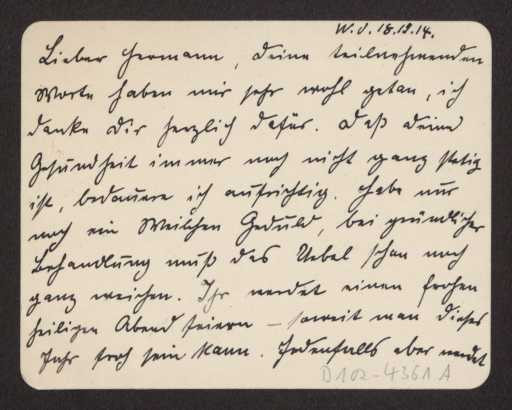 W. d. 18.12.14.
Lieber Hermann, Deine teilnehmenden
Worte haben mir sehr wohl getan, ich
danke Dir herzlich dafür. Daß Deine
Gesundheit immer noch nicht ganz stetig
ist, bedauere ich aufrichtig. Habe nur
noch ein Weilchen Geduld, bei gründlicher
Behandlung muß das Uebel schon noch
ganz weichen. Ihr werdet einen frohen
heiligen Abend feiern – soweit man dieses
Jahr froh sein kann. Jedenfalls aber werdet
D102-4361 A